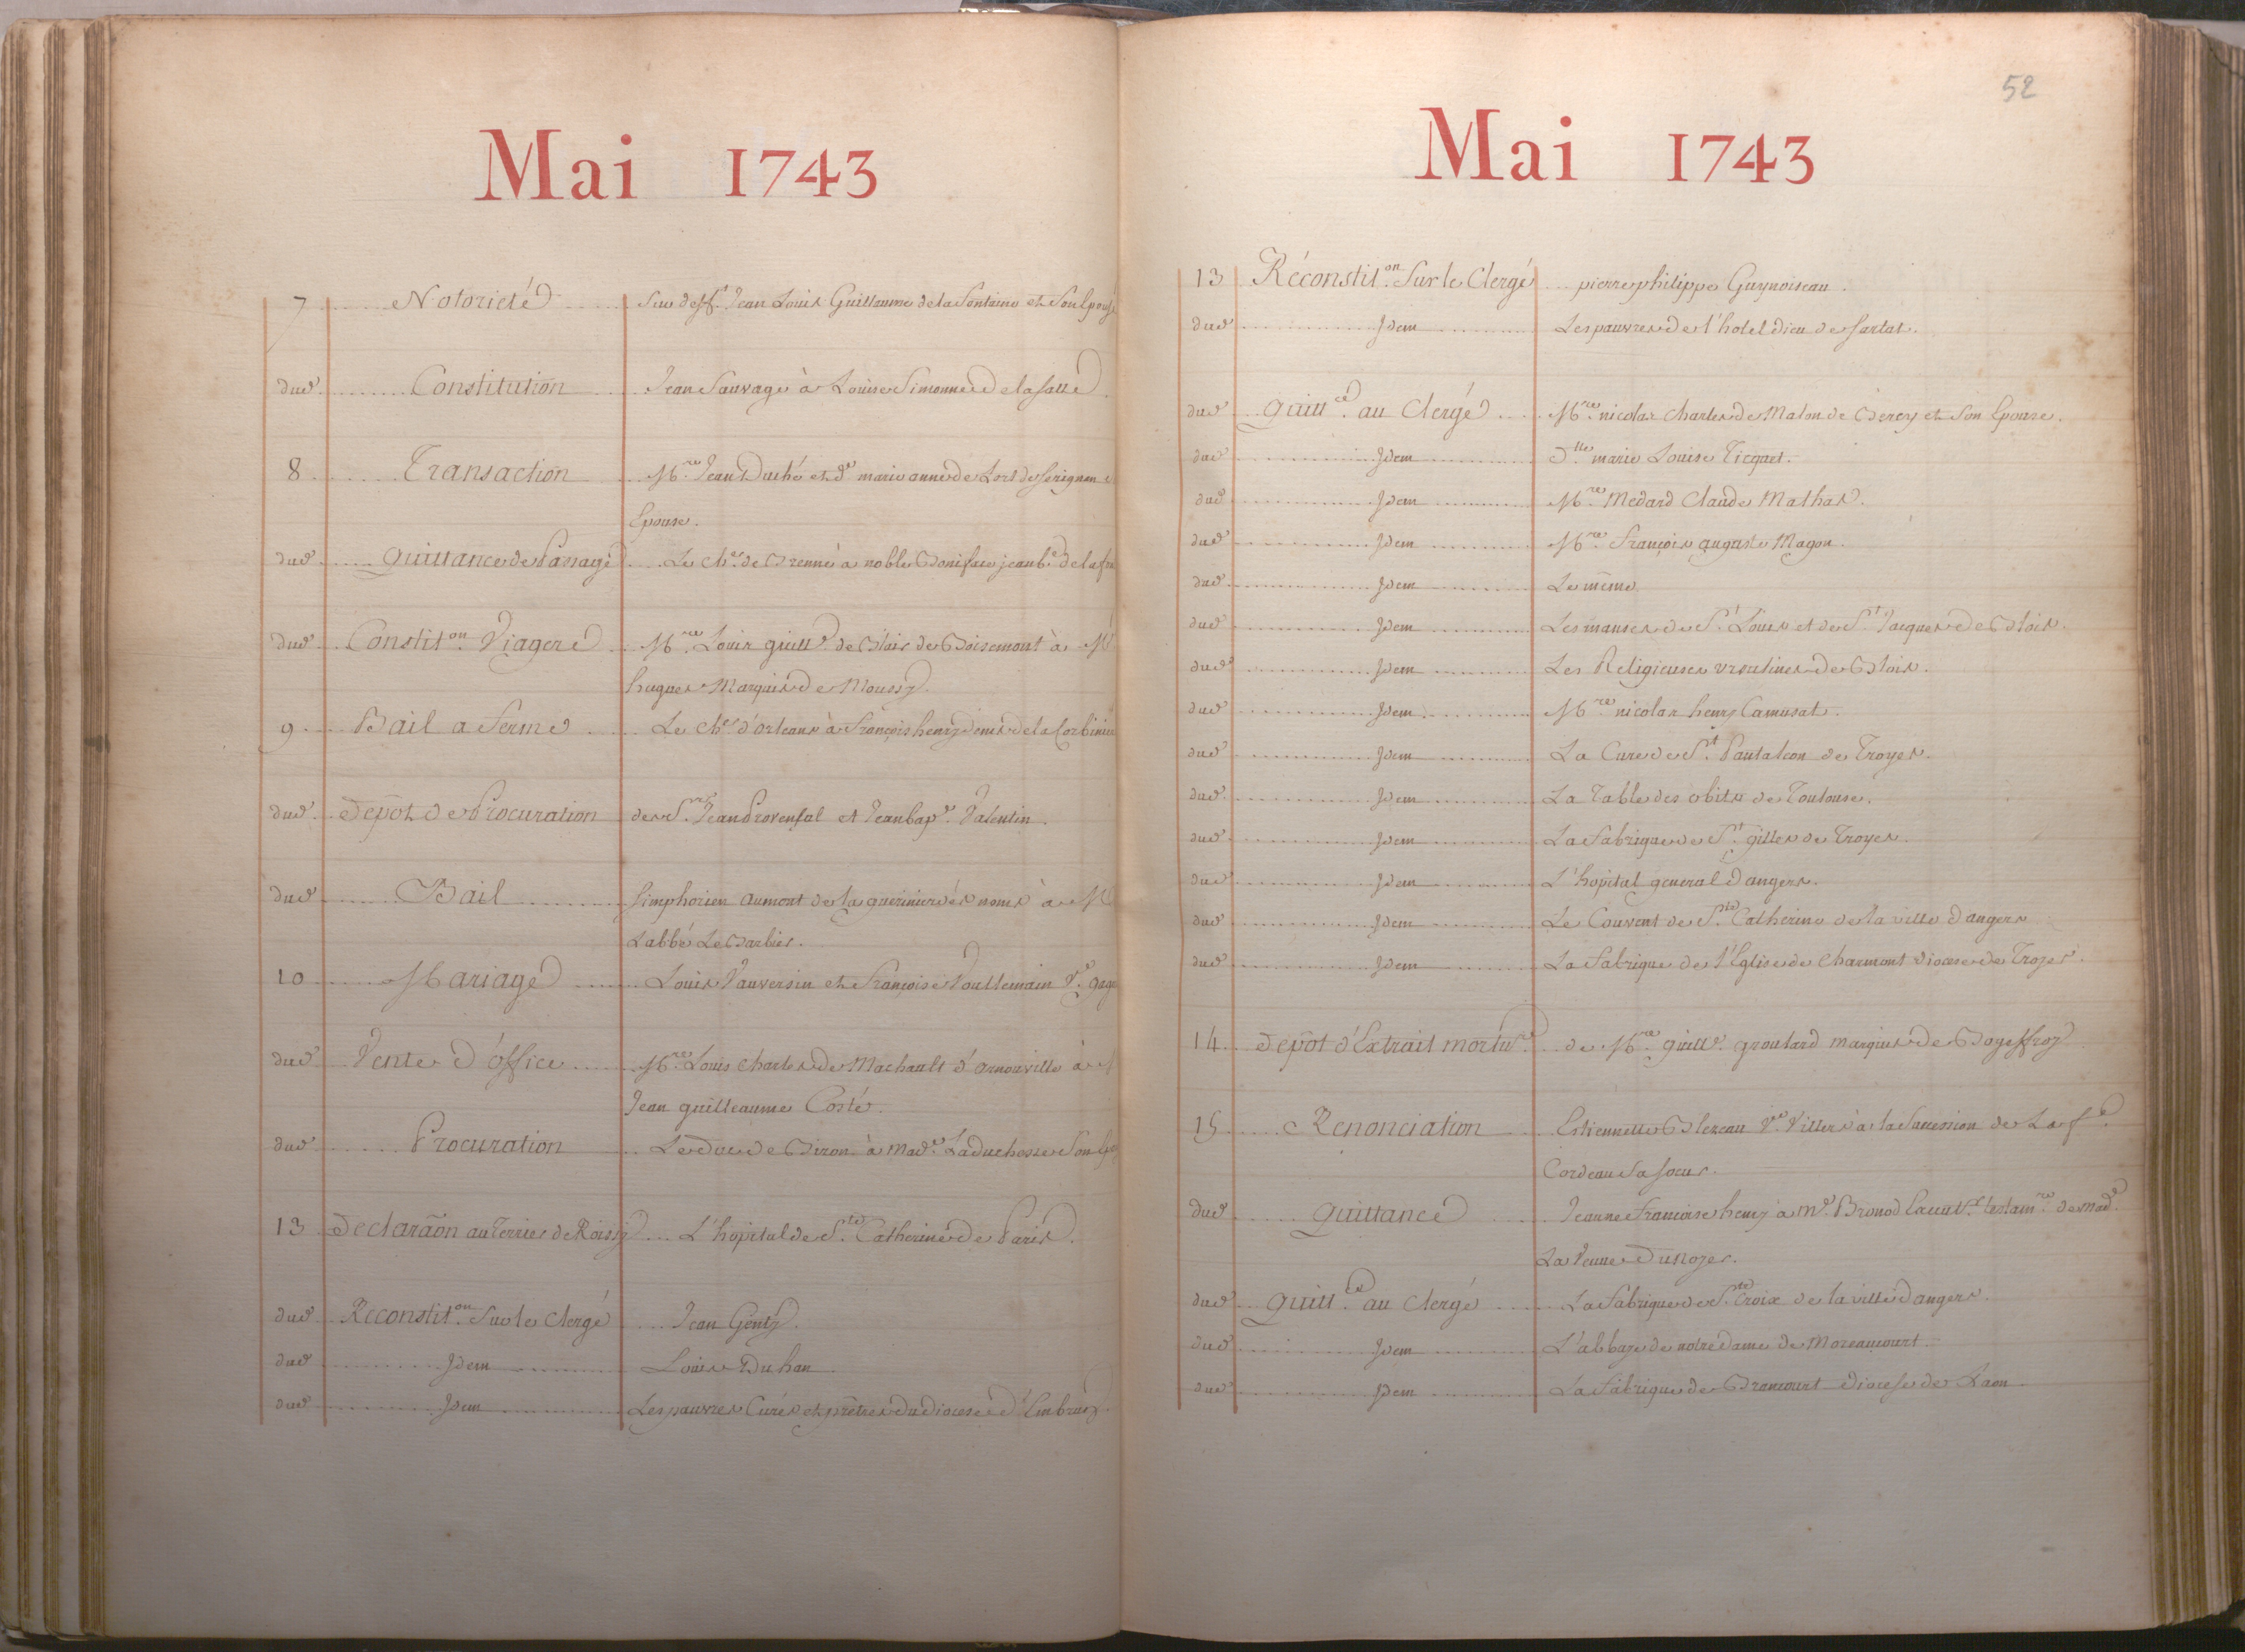 Mai 1743
7 Notorieté Sur deff.t Jean Louis Guillaume de la Fontaine et Son Epouse
dud. Constitution Jean Sauvage à Louise Simonne de la Salle
8 Transaction M.re Jean Duché et d.e marie anne de Lort de Serignan
Epouse.
dud. Quittance de Passage Le Ch.er de Brenne à noble Boniface jean b.e de la
dud. Constit.on Viagere M.re Louis guill.e de Blair de Boisemont à M
hugues Marquis de Moussy.
9 Bail a ferme Le Ch.er d'Orleans à François henry denis de la Corbinie
dud. Depot de Procuration des S.rs Jean Provensal et Jean bap.e Valentin.
dud. Bail Simphorien Aumont de la gueriniere és noms à M
L'abbé Le Barbier.
10 Mariage Louis Vauversin et Françoise Voullemain V.e
dud. Vente d'office M.re Louis Charles de Machault d'Arnouville à
Jean guilleaume Costé.
dud. Procuration Le duc de Biron à Mad.e La duchesse Son
13 Declarãon au Terrier de Roissy L'hopital de S.te Catherine de Paris.
dud. Reconstit.on Sur le Clergé Jean Genty.
dud. Idem Louis Duhan
dud. Idem Les pauvres Curés et prêtres du diocese d'Embrun
52
Mai 1743
13 Réconstit.on Sur le Clergé pierre philippe Guynoiseau.
dud. Idem Les pauvres de l'hotel dieu de Sarlat.
dud. Quitt.ce au Clergé M.re nicolas Charles de Malon de Bercy et Son Epouse.
dud. Idem D.lle marie Louise Ticquet.
dud. Idem M.re Medard Claude Mathas.
dud. Idem M.re François auguste Magon.
dud. Idem Le même
dud. Idem Les manses de S.t Louis et de S.t Jacques de Blois.
dud. Idem Les Religieuses ursulines de Blois.
dud. Idem M.re nicolas henry Camusat.
dud. Idem La Cure de S.t Pantaleon de Troyes.
dud. Idem La Table des obits de Toulouse.
dud. Idem La fabrique de S.t gilles de Troyes.
dud. Idem L'hopital general d'angers.
dud. Idem Le Couvent de S.te Catherine de la ville d'angers
dud. Idem La fabrique de l'Eglise de Charmont diocese de Troyes.
14 Depot d'Extrait mortu.re de M.re guill.e groulard marquis de Bogeffroy
15 Renonciation Estiennette Blezeau V.e Villers à la Succession de La f.e
Cordeau Sa Soeur.
dud. Quittance Jeanne Françoise henry à M.e Bronod testam.re de Mad.e
La Veuve Dunoyer.
dud. Quitt.ce au Clergé La fabrique de S.te Croix de la ville d'angers.
dud. Idem L'abbaye de notre dame de Moreaucourt.
dud. Idem La fabrique de Brancourt diocese de Laon.